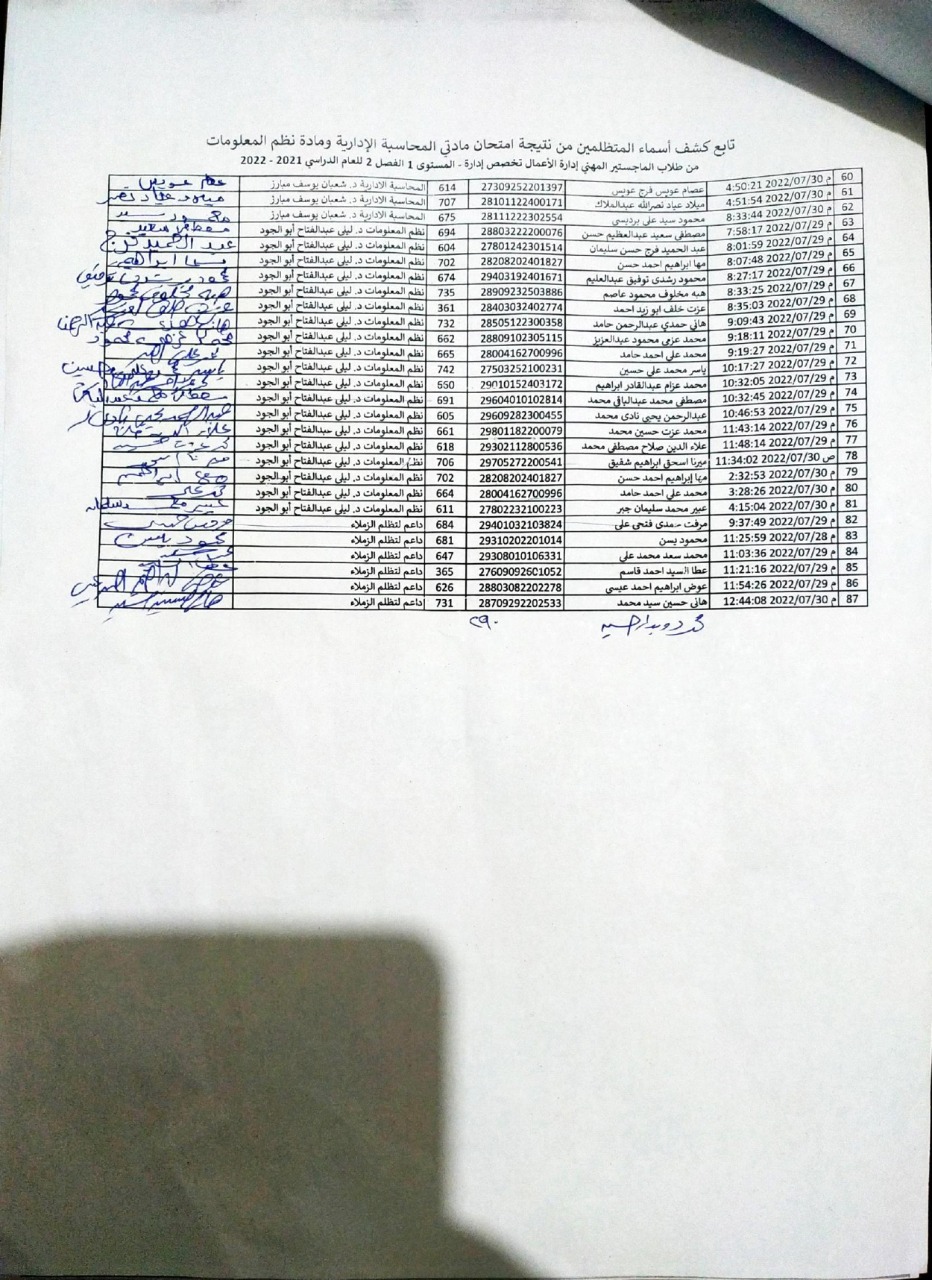 تابع كشف أسماء المتظلمين من نتيجة امتحان مادتي المحاسبة الإدارية ومادة نظم المعلومات
من طلاب الماجستير المهني إدارة الأعمال تخصص إدارة - المستوى 1 الفصل 2 للعام الدراسي 2021 - 2022
60 م 2022/07/30 4:50:21 عصام عويس فرج عويس 27309252201397 614 المحاسبة الادارية د. شعبان يوسف مبارز عصام عويس
61 م 2022/07/30 4:51:54 ميلاد عياد نصرالله عبدالملاك 28101122400171 707 المحاسبة الادارية د. شعبان يوسف مبارز ميلاد عياد نصر
62 م 2022/07/30 8:33:44 محمود سيد على برديسي 28111222302554 675 المحاسبة الادارية د. شعبان يوسف مبارز محمود سيد
63 م 2022/07/29 7:58:17 مصطفى سعيد عبدالعظيم حسن 28803222200076 694 نظم المعلومات د. ليلى عبدالفتاح أبو الجود مصطفى سعيد
64 م 2022/07/29 8:01:59 عبد الحميد فرج حسن سليمان 27801242301514 604 نظم المعلومات د. ليلى عبدالفتاح أبو الجود عبد الحميد فرج
65 م 2022/07/29 8:07:48 مها ابراهيم احمد حسن 28208202401827 702 نظم المعلومات د. ليلى عبدالفتاح أبو الجود ابراهيم
66 م 2022/07/29 8:27:17 محمود رشدى توفيق عبدالعليم 29403192401671 674 نظم المعلومات د. ليلى عبدالفتاح أبو الجود محمود رشدى توفيق
67 م 2022/07/29 8:33:25 هبه مخلوف محمود عاصم 28909232503886 735 نظم المعلومات د. ليلى عبدالفتاح أبو الجود هبه مخلوف محمود
68 م 2022/07/29 8:35:03 عزت خلف ابو زيد احمد 28403032402774 361 نظم المعلومات د. ليلى عبدالفتاح أبو الجود عزت خلف
69 م 2022/07/29 9:09:43 هاني حمدي عبدالرحمن حامد 28505122300358 732 نظم المعلومات د. ليلى عبدالفتاح أبو الجود
70 م 2022/07/29 9:18:11 محمد عزمي محمود عبدالعزيز 28809102305115 662 نظم المعلومات د. ليلى عبدالفتاح أبو الجود محمد عزمى محمود
71 م 2022/07/29 9:19:27 محمد على احمد حامد 28004162700996 665 نظم المعلومات د. ليلى عبدالفتاح أبو الجود محمد على
72 م 2022/07/29 10:17:27 ياسر محمد على حسين 27503252100231 742 نظم المعلومات د. ليلى عبدالفتاح أبو الجود ياسر
73 م 2022/07/29 10:32:05 محمد عزام عبدالقادر ابراهيم 29010152403172 660 نظم المعلومات د. ليلى عبدالفتاح أبو الجود
74 م 2022/07/29 10:32:45 مصطفى محمد عبدالباقى محمد 29604010102814 691 نظم المعلومات د. ليلى عبدالفتاح أبو الجود
75 م 2022/07/29 10:46:53 عبدالرحمن يحيى نادى محمد 29609282300455 605 نظم المعلومات د. ليلى عبدالفتاح أبو الجود عبدالرحمن يحيى نادى
76 م 2022/07/29 11:43:14 محمد عزت حسين محمد 29801182200079 661 نظم المعلومات د. ليلى عبدالفتاح أبو الجود
77 م 2022/07/29 11:48:14 علاء الدين صلاح مصطفى محمد 29302112800536 618 نظم المعلومات د. ليلى عبدالفتاح أبو الجود
78 ص 2022/07/30 11:34:02 ميرنا اسحق ابراهيم شفيق 29705272200541 706 نظم المعلومات د. ليلى عبدالفتاح أبو الجود
79 م 2022/07/30 2:32:53 مها إبراهيم احمد حسن 28208202401827 702 نظم المعلومات د. ليلى عبدالفتاح أبو الجود
80 م 2022/07/30 3:28:26 محمد علي احمد حامد 28004162700996 664 نظم المعلومات د. ليلى عبدالفتاح أبو الجود محمد على
81 م 2022/07/30 4:15:04 عبير محمد سليمان جبر 27802232100223 611 نظم المعلومات د. ليلى عبدالفتاح أبو الجود عبير محمد سليمان
82 م 2022/07/29 9:37:49 مرفت حمدى فتحى على 29401032103824 684 داعم لتظلم الزملاء
83 م 2022/07/28 11:25:59 محمود يسن 29310202201014 681 داعم لتظلم الزملاء محمود يسن
84 م 2022/07/29 11:03:36 محمد سعد محمد على 29308010106331 647 داعم لتظلم الزملاء
85 م 2022/07/29 11:21:16 عطا السيد احمد قاسم 27609092601052 365 داعم لتظلم الزملاء عطا السيد
86 م 2022/07/29 11:54:26 عوض ابراهيم احمد عيسي 28803082202278 626 داعم لتظلم الزملاء عوض ابراهيم
87 م 2022/07/30 12:44:08 هانى حسين سيد محمد 28709292202533 731 داعم لتظلم الزملاء هانى حسين سيد
محمد ٢٩٠